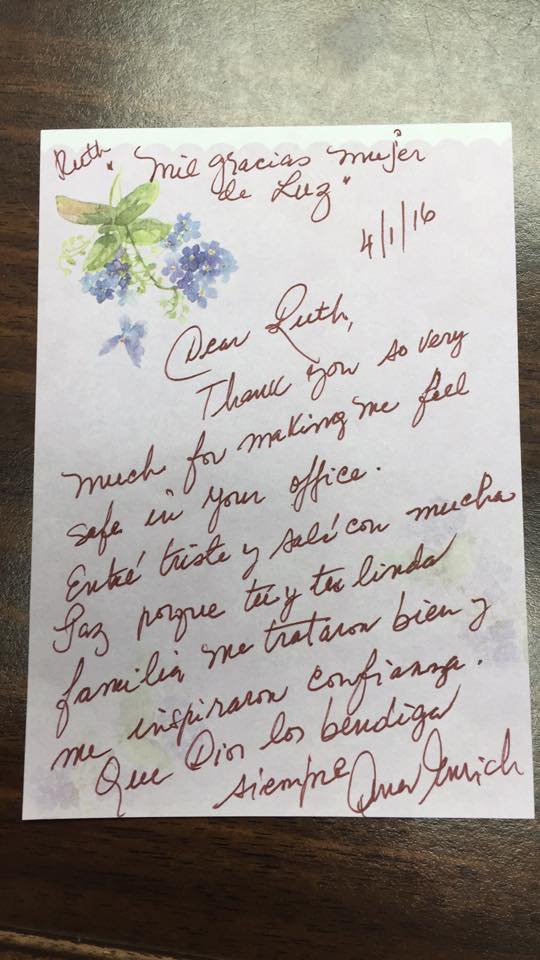 Ruth "Mil gracias mujer
de Luz"
4/1/16
Dear Ruth,
Thank you so very
much for making me feel
safe in your office.
Entré triste y salí con mucha
Paz porque tu y tu linda
familia me trataron bien y
me inspiraron confianza.
Que Dios los bendiga
siempre